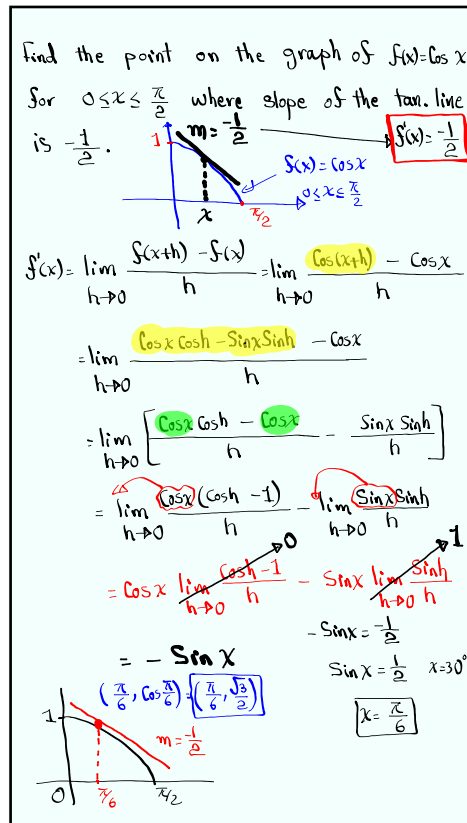 Find the point on the graph of f(x)=Cos x
for 0≤x≤ π/2 where slope of the tan. line
is -1/2.
m=-1/2
f'(x)=-1/2
1
f(x)=Cosx
0≤x≤π/2
x
π/2
f'(x)= lim h→0 (f(x+h) - f(x))/h = lim h→0 (Cos(x+h) - Cosx)/h
= lim h→0 (Cosx Cosh - Sinx Sinh - Cosx)/h
= lim h→0 [(Cosx Cosh - Cosx)/h - (Sinx Sinh)/h]
= lim h→0 (Cosx (Cosh -1))/h - lim h→0 (Sinx Sinh)/h
0
1
= Cosx lim h→0 (Cosh-1)/h - Sinx lim h→0 Sinh/h
= - Sin x
-Sinx = -1/2
Sinx = 1/2 x=30°
x = π/6
(π/6, Cos π/6) = (π/6, √3/2)
1
m=-1/2
0
π/6
π/2